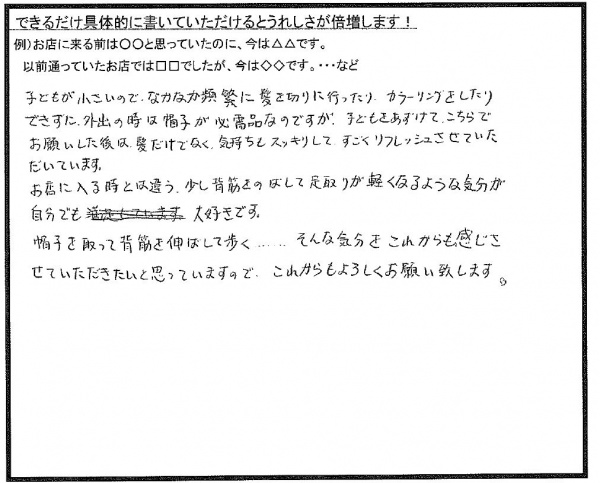 できるだけ具体的に書いていただけるとうれしさが倍増します!
例)お店に来る前は〇〇と思っていたのに、今は△△です。
以前通っていたお店では□□でしたが、今は◇◇です。・・・など
子どもが小さいので、なかなか頻繁に髪を切りに行ったり、カラーリングをしたり
できずに、外出の時は帽子が必需品なのですが、子どもをあずけて、こちらで
お願いした後は、髪だけでなく、気持ちもスッキリして、すごくリフレッシュさせていた
だいています。
お店に入る時とは違う、少し背筋をのばして足取りが軽くなるような気分が
自分でも 大好きです。
帽子を取って背筋を伸ばして歩く…… そんな気分をこれからも感じさ
せていただきたいと思っていますので、これからもよろしくお願い致します。